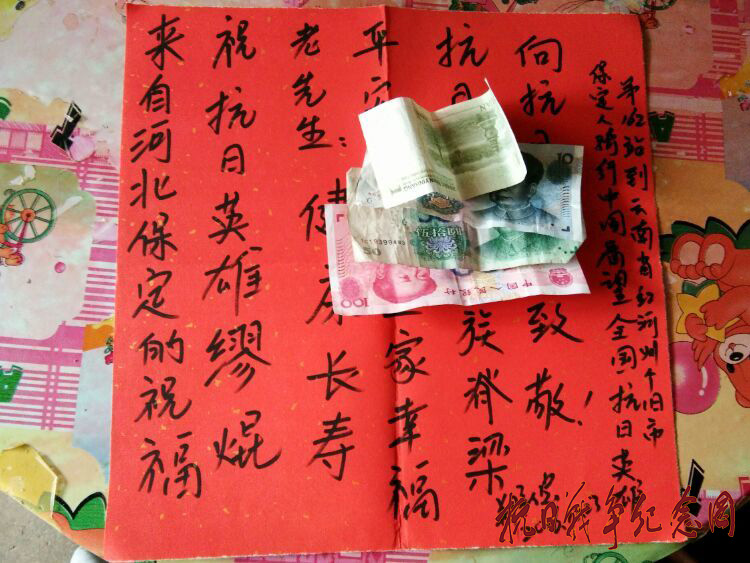 来自河北保定的祝福
祝抗日英雄缪焜
老先生：健康长寿
平安全家幸福
抗日族脊梁
向抗日致敬！
保定人骑行中国看望全国抗日英雄
第162站到云南省红河州个旧市
10
伍拾圆
50
中国人民银行
100
抗日战争纪念网